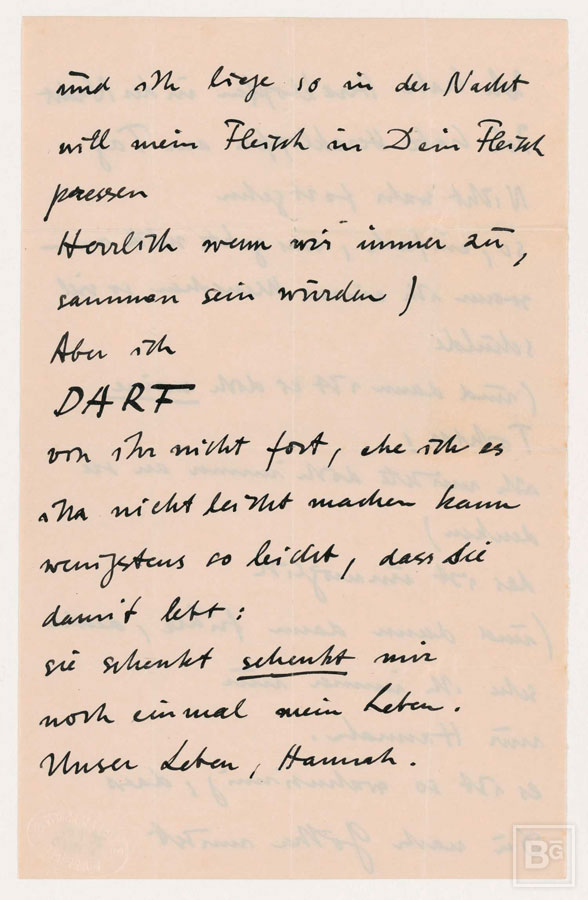 und ich liege so in der Nacht
will mein Fleisch in Dein Fleisch
pressen
Herrlich wenn wir immer zu,
sammen sein würden )
Aber ich
DARF
von ihr nicht fort, ehe ich es
ihr nicht leicht machen kann
wenigstens so leicht, dass sie
damit lebt:
sie schenkt schenkt mir
noch einmal mein Leben.
Unser Leben, Hannah.
BG